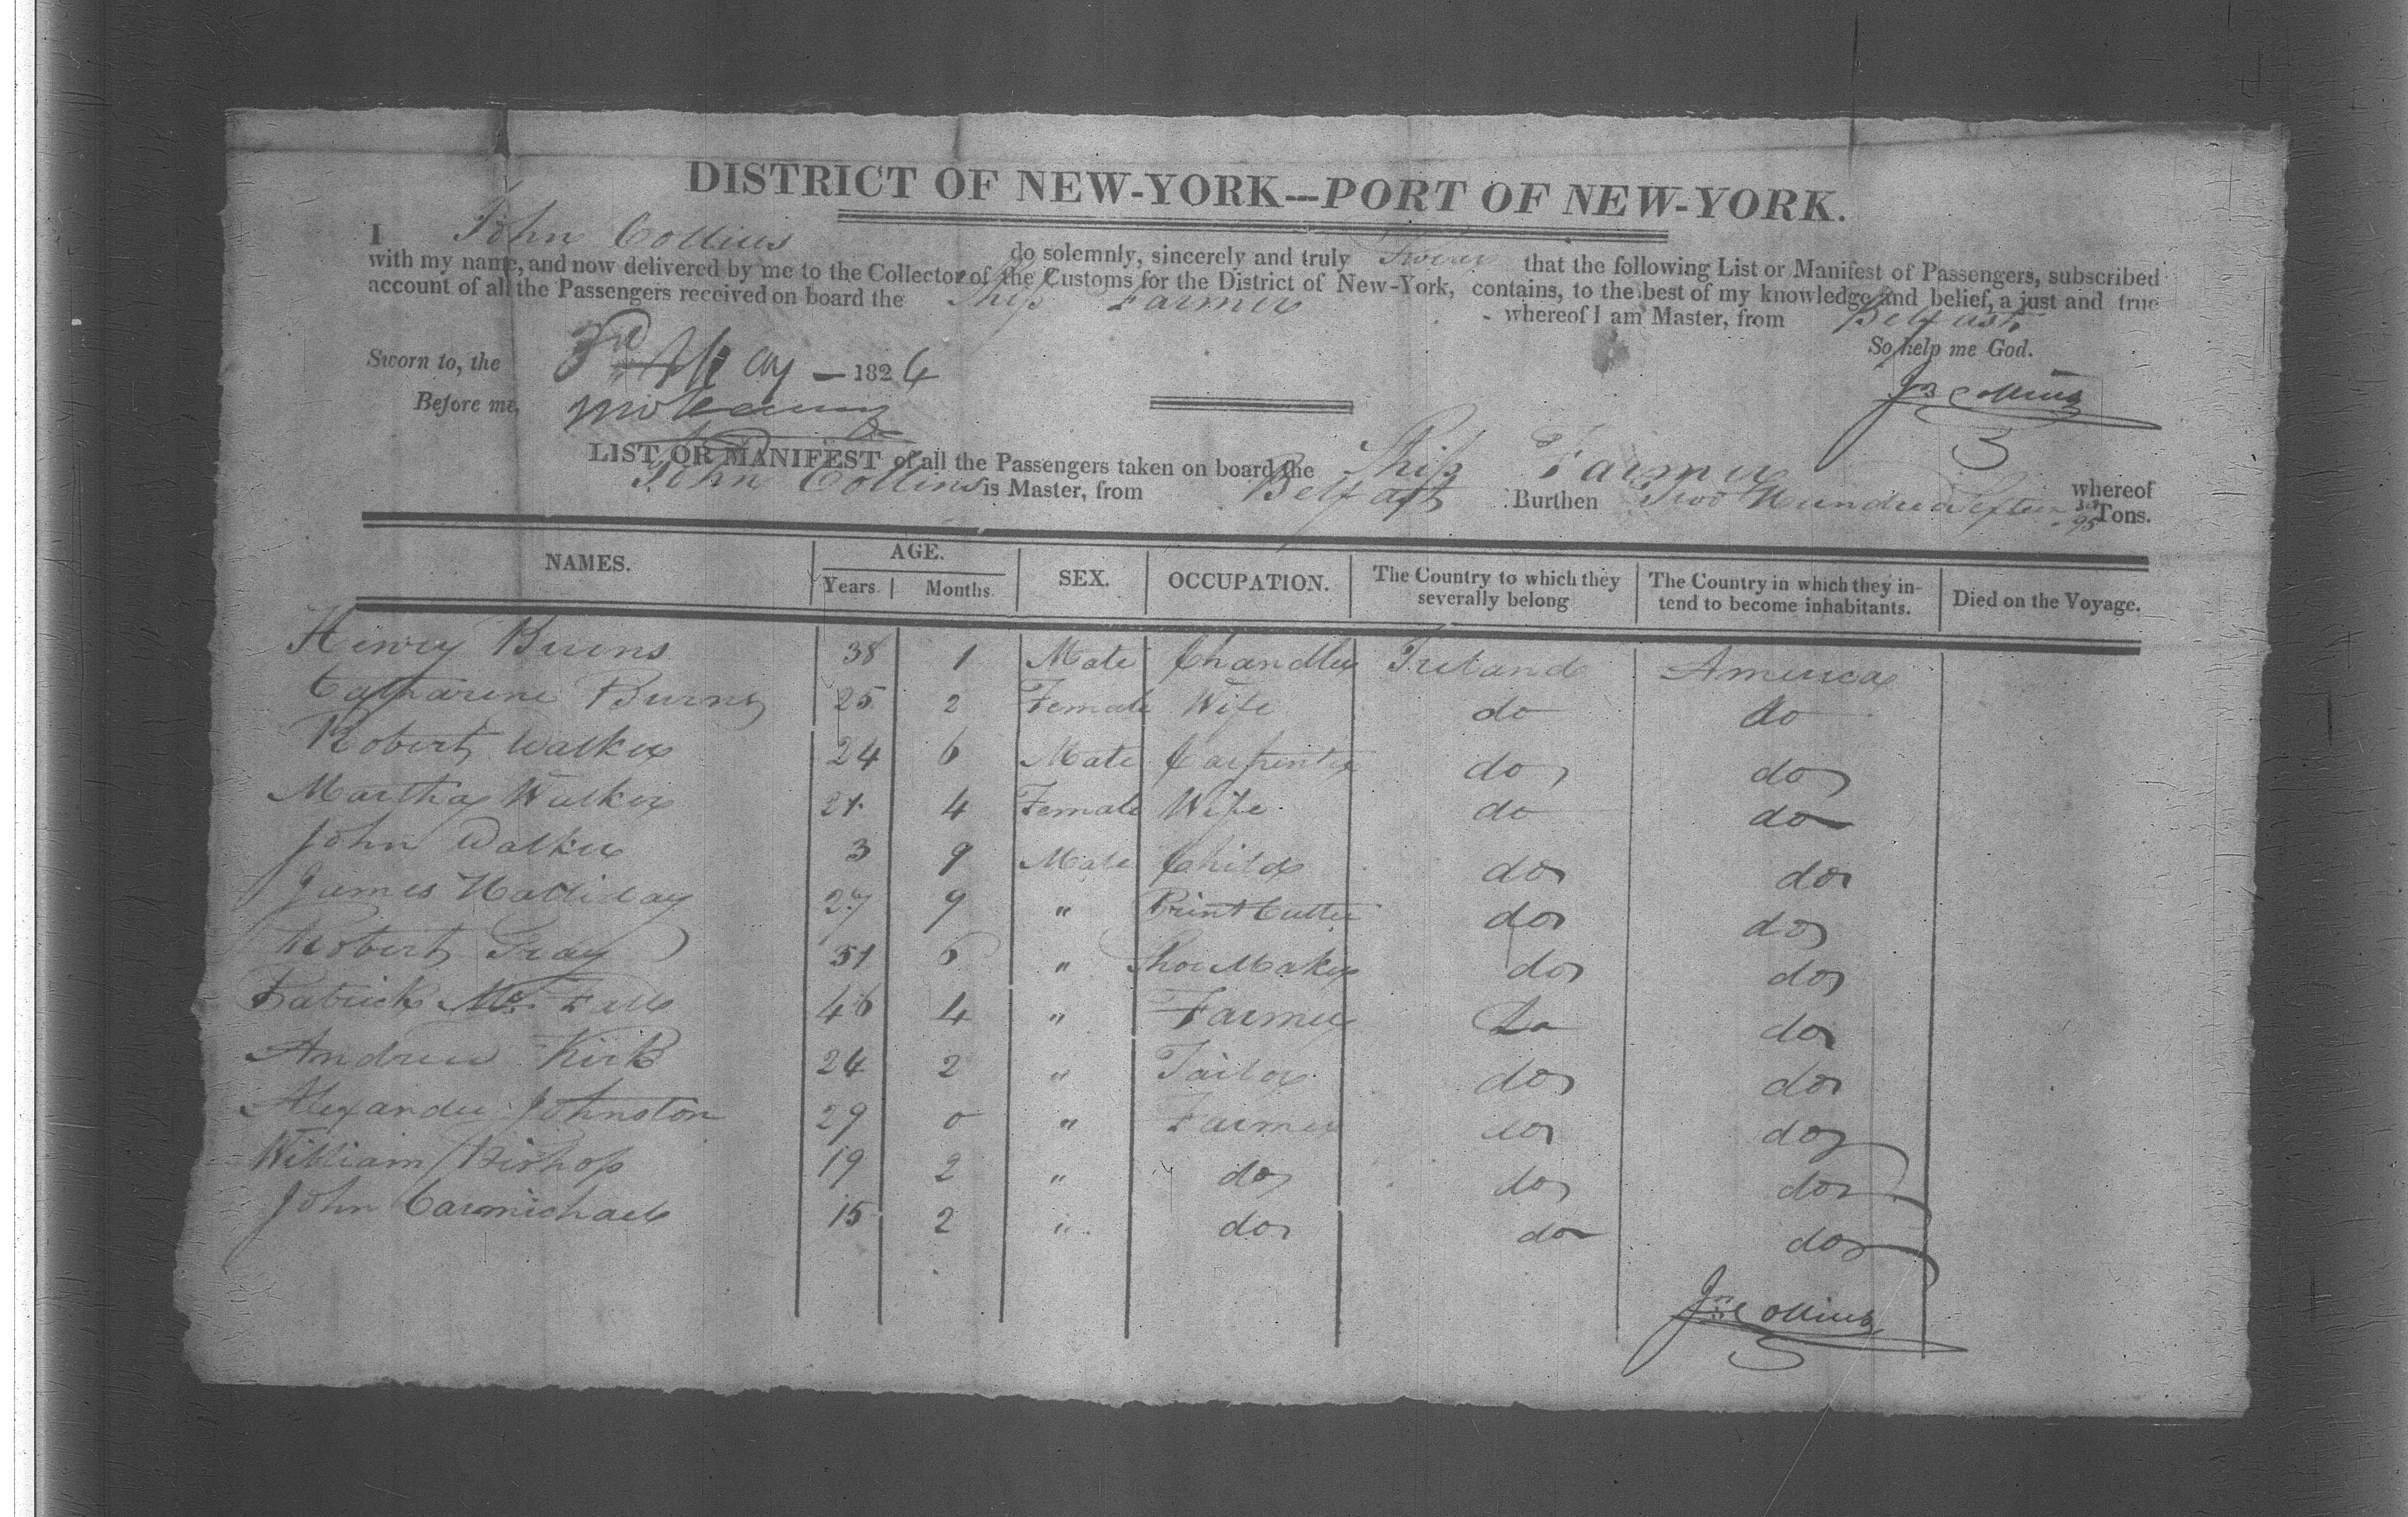 DISTRICT OF NEW-YORK---PORT OF NEW-YORK.
I John Collins do solemnly, sincerely and truly Swear that the following List or Manifest of Passengers, subscribed
with my name, and now delivered by me to the Collector of the Customs for the District of New-York, contains, to the best of my knowledge and belief, a just and true
account of all the Passengers received on board the Ship Farmer whereof I am Master, from Belfast
So help me God.
Sworn to, the 3rd May - 1824
Before me,
Jno Collins
LIST OR MANIFEST of all the Passengers taken on board the Ship Farmer whereof
John Collins is Master, from Belfast Burthen Two Hundred Tons.
NAMES. AGE. Years. Months. SEX. OCCUPATION. The Country to which they severally belong The Country in which they intend to become inhabitants. Died on the Voyage.
Henry Burns 38 1 Male Chandler Ireland America
Catharine Burns 25 2 Female Wife do do
Robert Walker 24 6 Male Carpenter do do
Martha Walker 21 4 Female Wife do do
John Walker 3 9 Male Child do do
James Halliday 27 9 " Print Cutter do do
Robert Gray 31 6 " Shoe Maker do do
Patrick Mc Falls 46 4 " Farmer Do do
Andrew Kirk 24 2 " Tailor do do
Alexander Johnston 29 0 " Farmer do do
William Bishop 19 2 " do do do
John Carmichael 15 2 " do do do
Jno Collins